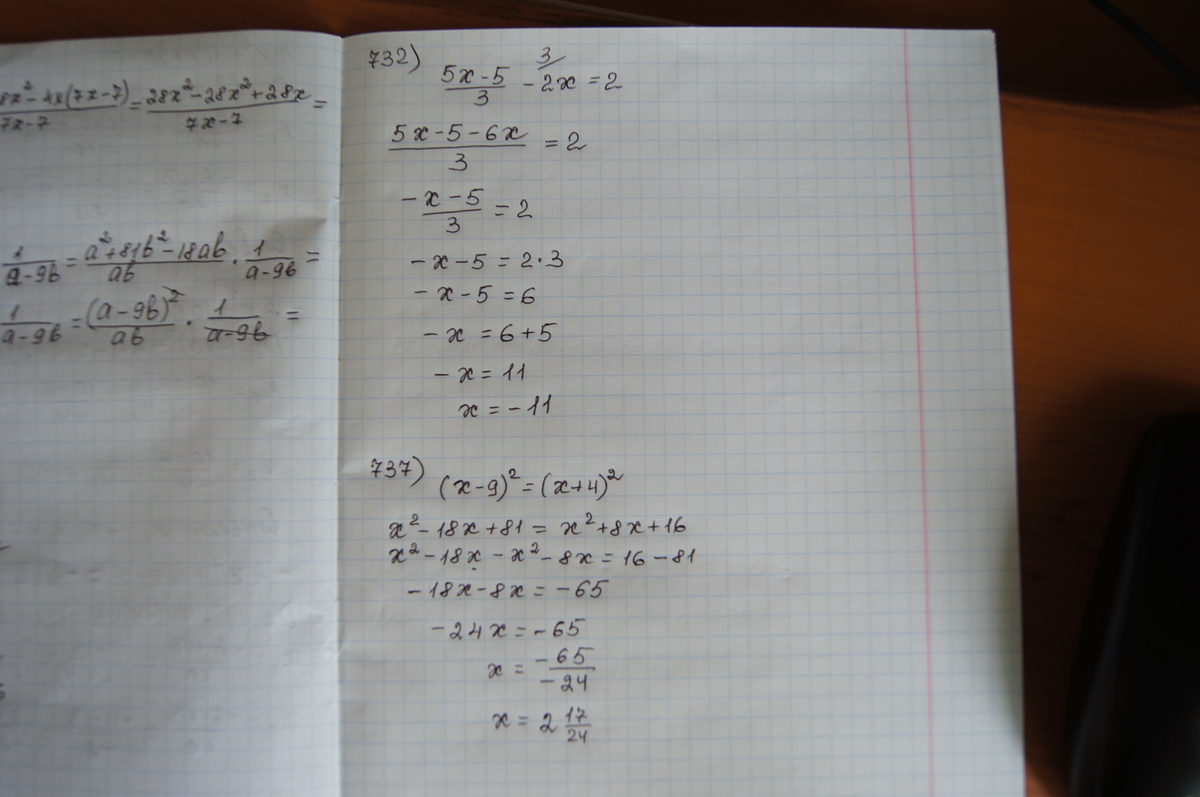 8x² - 4x(7x-7) / 7x-7 = 28x² - 28x² + 28x / 7x-7 =
1 / a-9b = a² + 81b² - 18ab / ab · 1 / a-9b =
1 / a-9b = (a-9b)² / ab · 1 / a-9b =
732) 5x-5 / 3 - 2x = 2
3/
5x-5-6x / 3 = 2
-x-5 / 3 = 2
-x-5 = 2·3
-x-5 = 6
-x = 6+5
-x = 11
x = -11
737) (x-9)² = (x+4)²
x² - 18x + 81 = x² + 8x + 16
x² - 18x - x² - 8x = 16 - 81
-18x - 8x = -65
-24x = -65
x = -65 / -24
x = 2 17/24